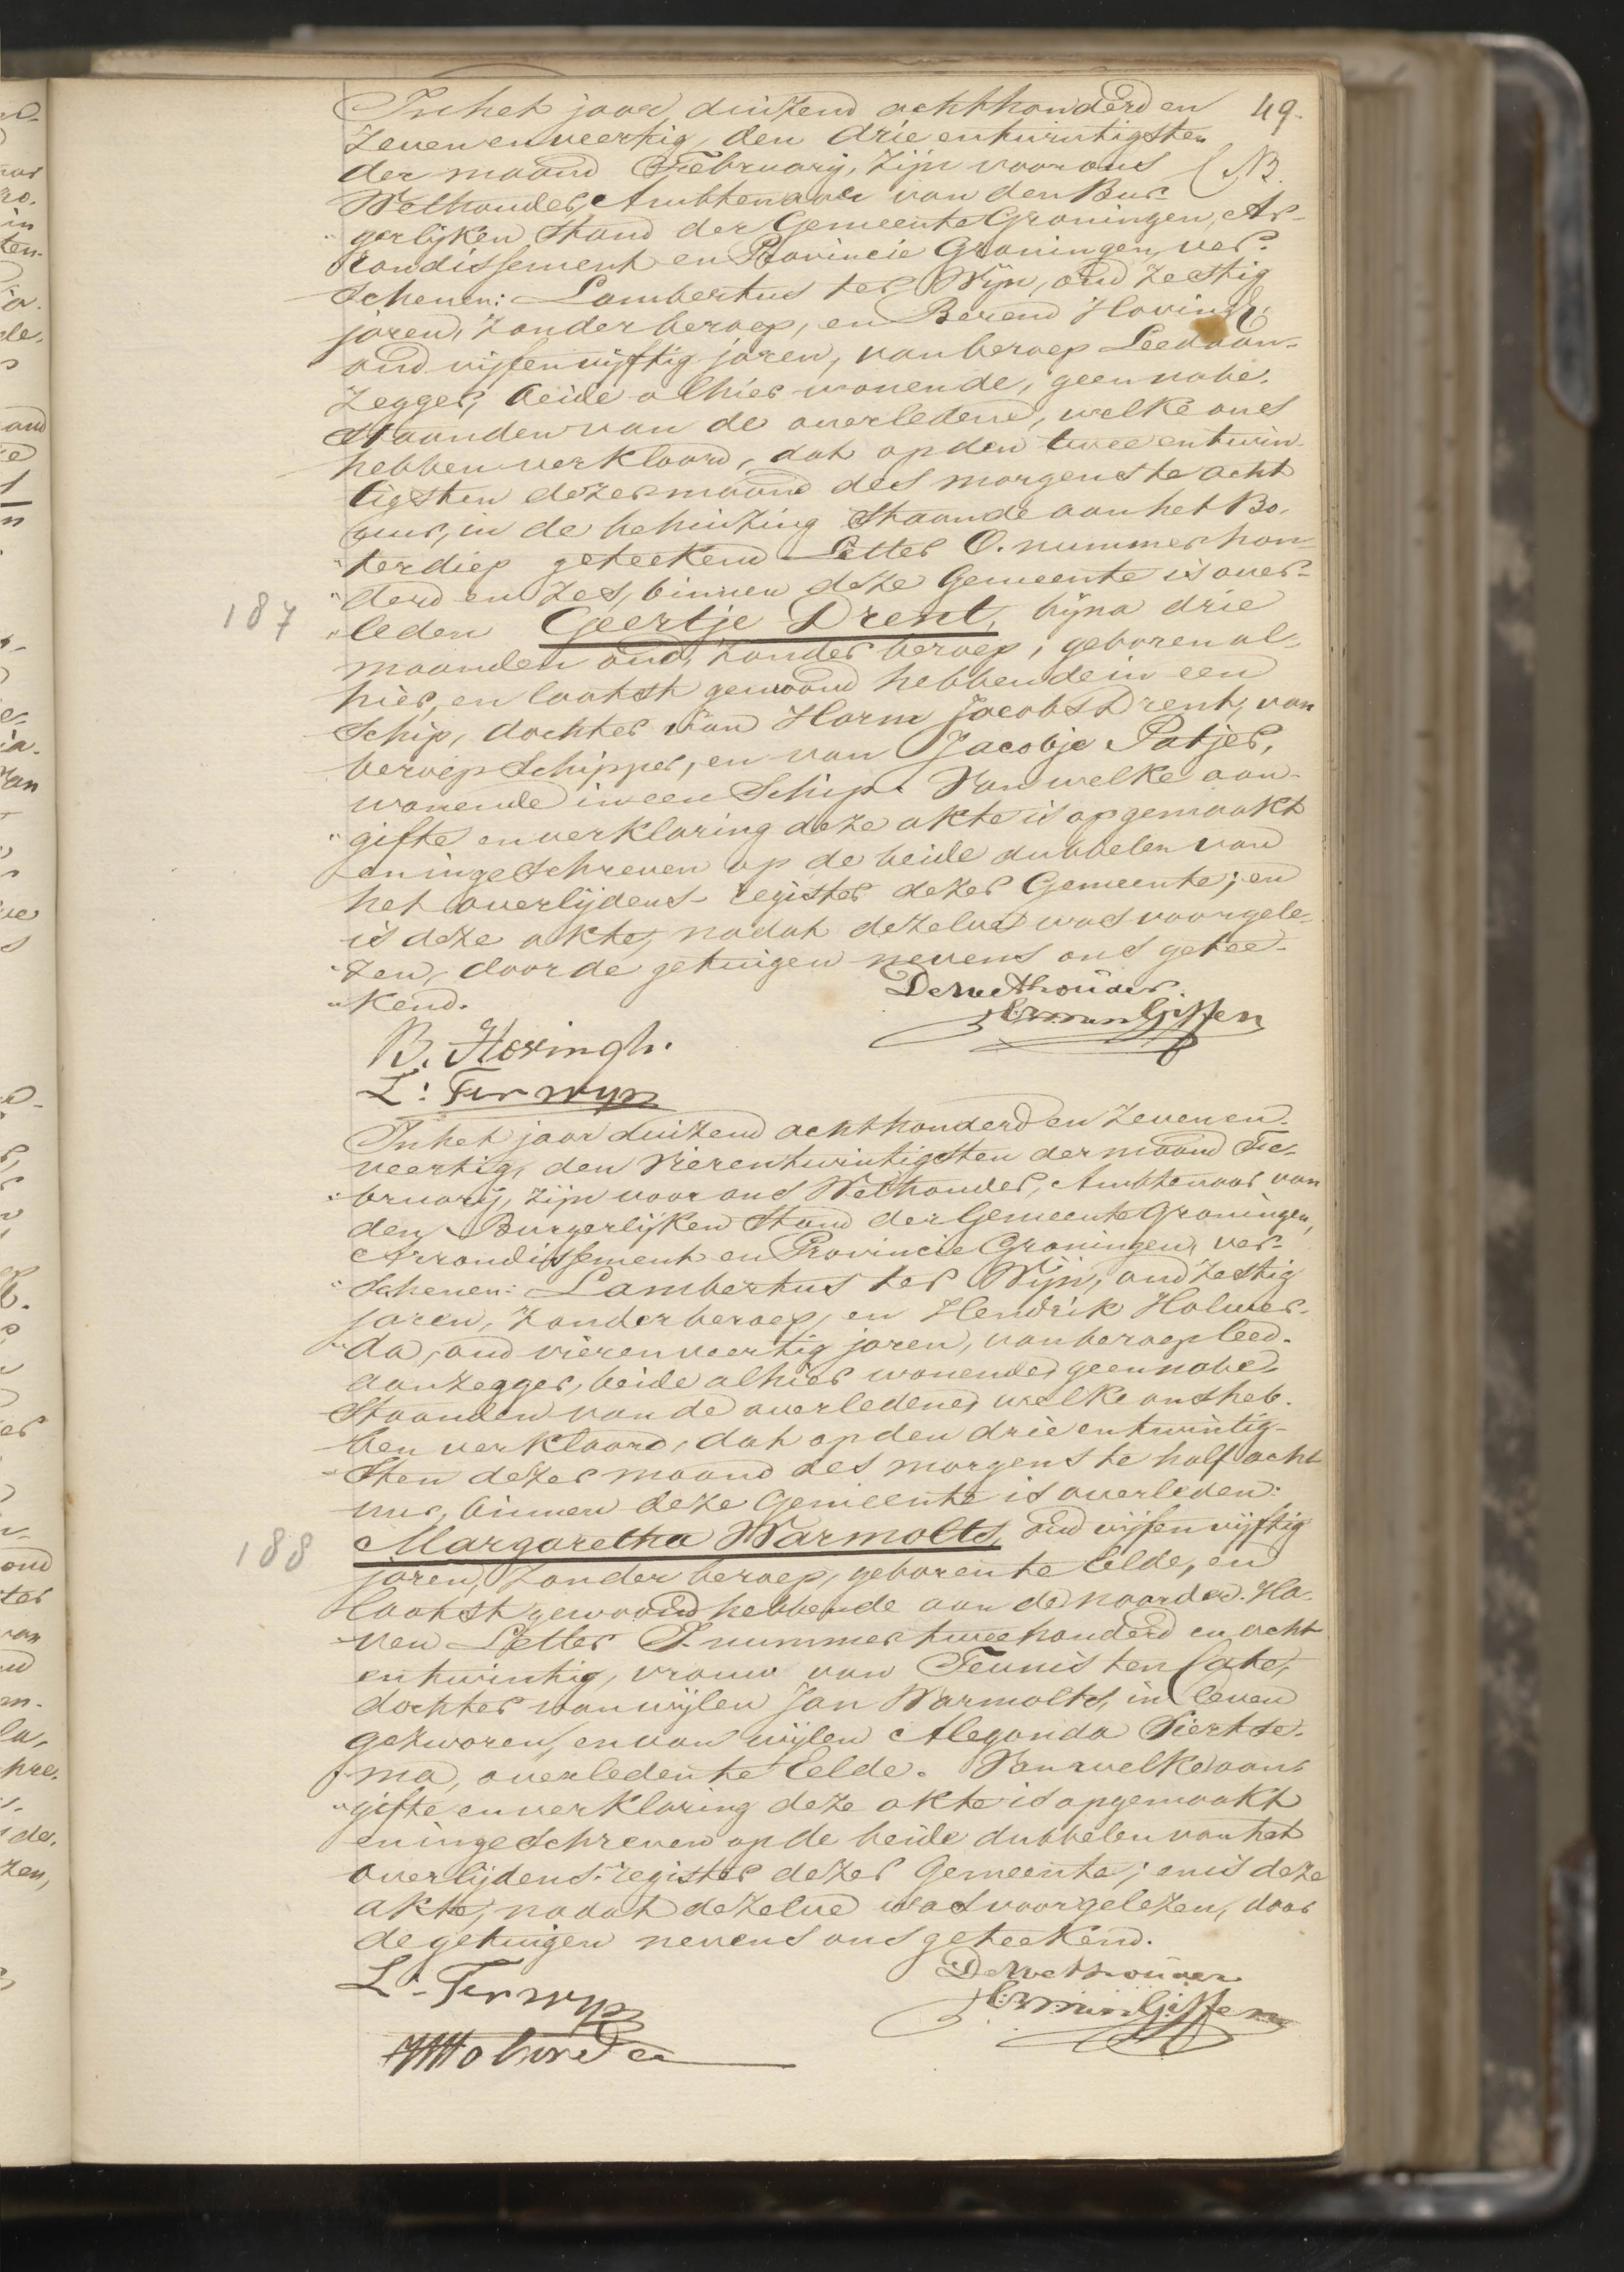 49.
In het jaar duizend achthonderd en
zevenenveertig, den drieentwintigsten
der maand February, zijn voor ons
Wethouder, Ambtenaar van den Bur-
gerlijken Stand der Gemeente Groningen, Ar-
rondissement en Provincie Groningen, ver-
schenen: Lambertus ter Wijn, oud zestig
jaren, zonder beroep, en Berend Hovingh,
oud vijfenvijftig jaren, van beroep Leedaan-
zegger, beide alhier wonende, geen nabe-
staanden van de overledene, welke ons
hebben verklaard, dat op den tweeentwin-
tigsten dezer maand des morgens te acht
uur, in de behuizing staande aan het Bo-
terdiep geteekend Letter O. nummer hon-
derd en zes, binnen deze Gemeente is over-
187
leden Geertje Drent, bijna drie
maanden oud, zonder beroep, geboren al-
hier, en laatst gewoond hebbende in een
Schip, dochter van Harm Jacobs Drent, van
beroep Schipper, en van Jacobje Patjer,
wonende in een Schip. Van welke aan-
gifte en verklaring deze akte is opgemaakt
en ingeschreven op de beide dubbelen van
het overlijdens-register dezer Gemeente; en
is deze akte, nadat dezelve was voorgele-
zen, door de getuigen nevens ons getee-
kend.
De Wethouder.
B. Hovingh.
L: Terwyn
In het jaar duizend achthonderd en zevenen-
veertig, den vierentwintigsten der maand Fe-
bruarij, zijn voor ons Wethouder, Ambtenaar van
den Burgerlijken Stand der Gemeente Groningen,
Arrondissement en Provincie Groningen, ver-
schenen: Lambertus ter Wijn, oud zestig
jaren, zonder beroep, en Hendrik Holwer-
da, oud vierenveertig jaren, van beroep leed-
aanzegger, beide alhier wonende, geen nabe-
staanden van de overledene, welke ons heb-
ben verklaard, dat op den drieentwintig-
sten dezer maand des morgens te half acht
uur, binnen deze Gemeente is overleden:
188
Margaretha Warmolts, oud vijfenvijftig
jaren, zonder beroep, geboren te Eelde, en
laatst gewoond hebbende aan de Noorder-Ha-
ven Letter I. nummer tweehonderd en acht
entwintig, vrouw van Teunis ten Cate,
dochter van wijlen Jan Warmolts, in leven
gezworen, en van wijlen Alegonda Siertse-
ma, overleden te Eelde. Van welke aan-
gifte en verklaring deze akte is opgemaakt
en ingeschreven op de beide dubbelen van het
overlijdens-register dezer Gemeente; en is deze
akte, nadat dezelve was voorgelezen, door
de getuigen nevens ons geteekend.
De Wethouder
L. Terwyn